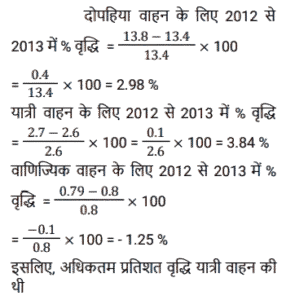 दोपहिया वाहन के लिए 2012 से
2013 में % वृद्धि = \frac{13.8 - 13.4}{13.4} × 100
= \frac{0.4}{13.4} × 100 = 2.98 %
यात्री वाहन के लिए 2012 से 2013 में % वृद्धि
= \frac{2.7 - 2.6}{2.6} × 100 = \frac{0.1}{2.6} × 100 = 3.84 %
वाणिज्यिक वाहन के लिए 2012 से 2013 में %
वृद्धि = \frac{0.79 - 0.8}{0.8} × 100
= \frac{-0.1}{0.8} × 100 = - 1.25 %
इसलिए, अधिकतम प्रतिशत वृद्धि यात्री वाहन की
थी